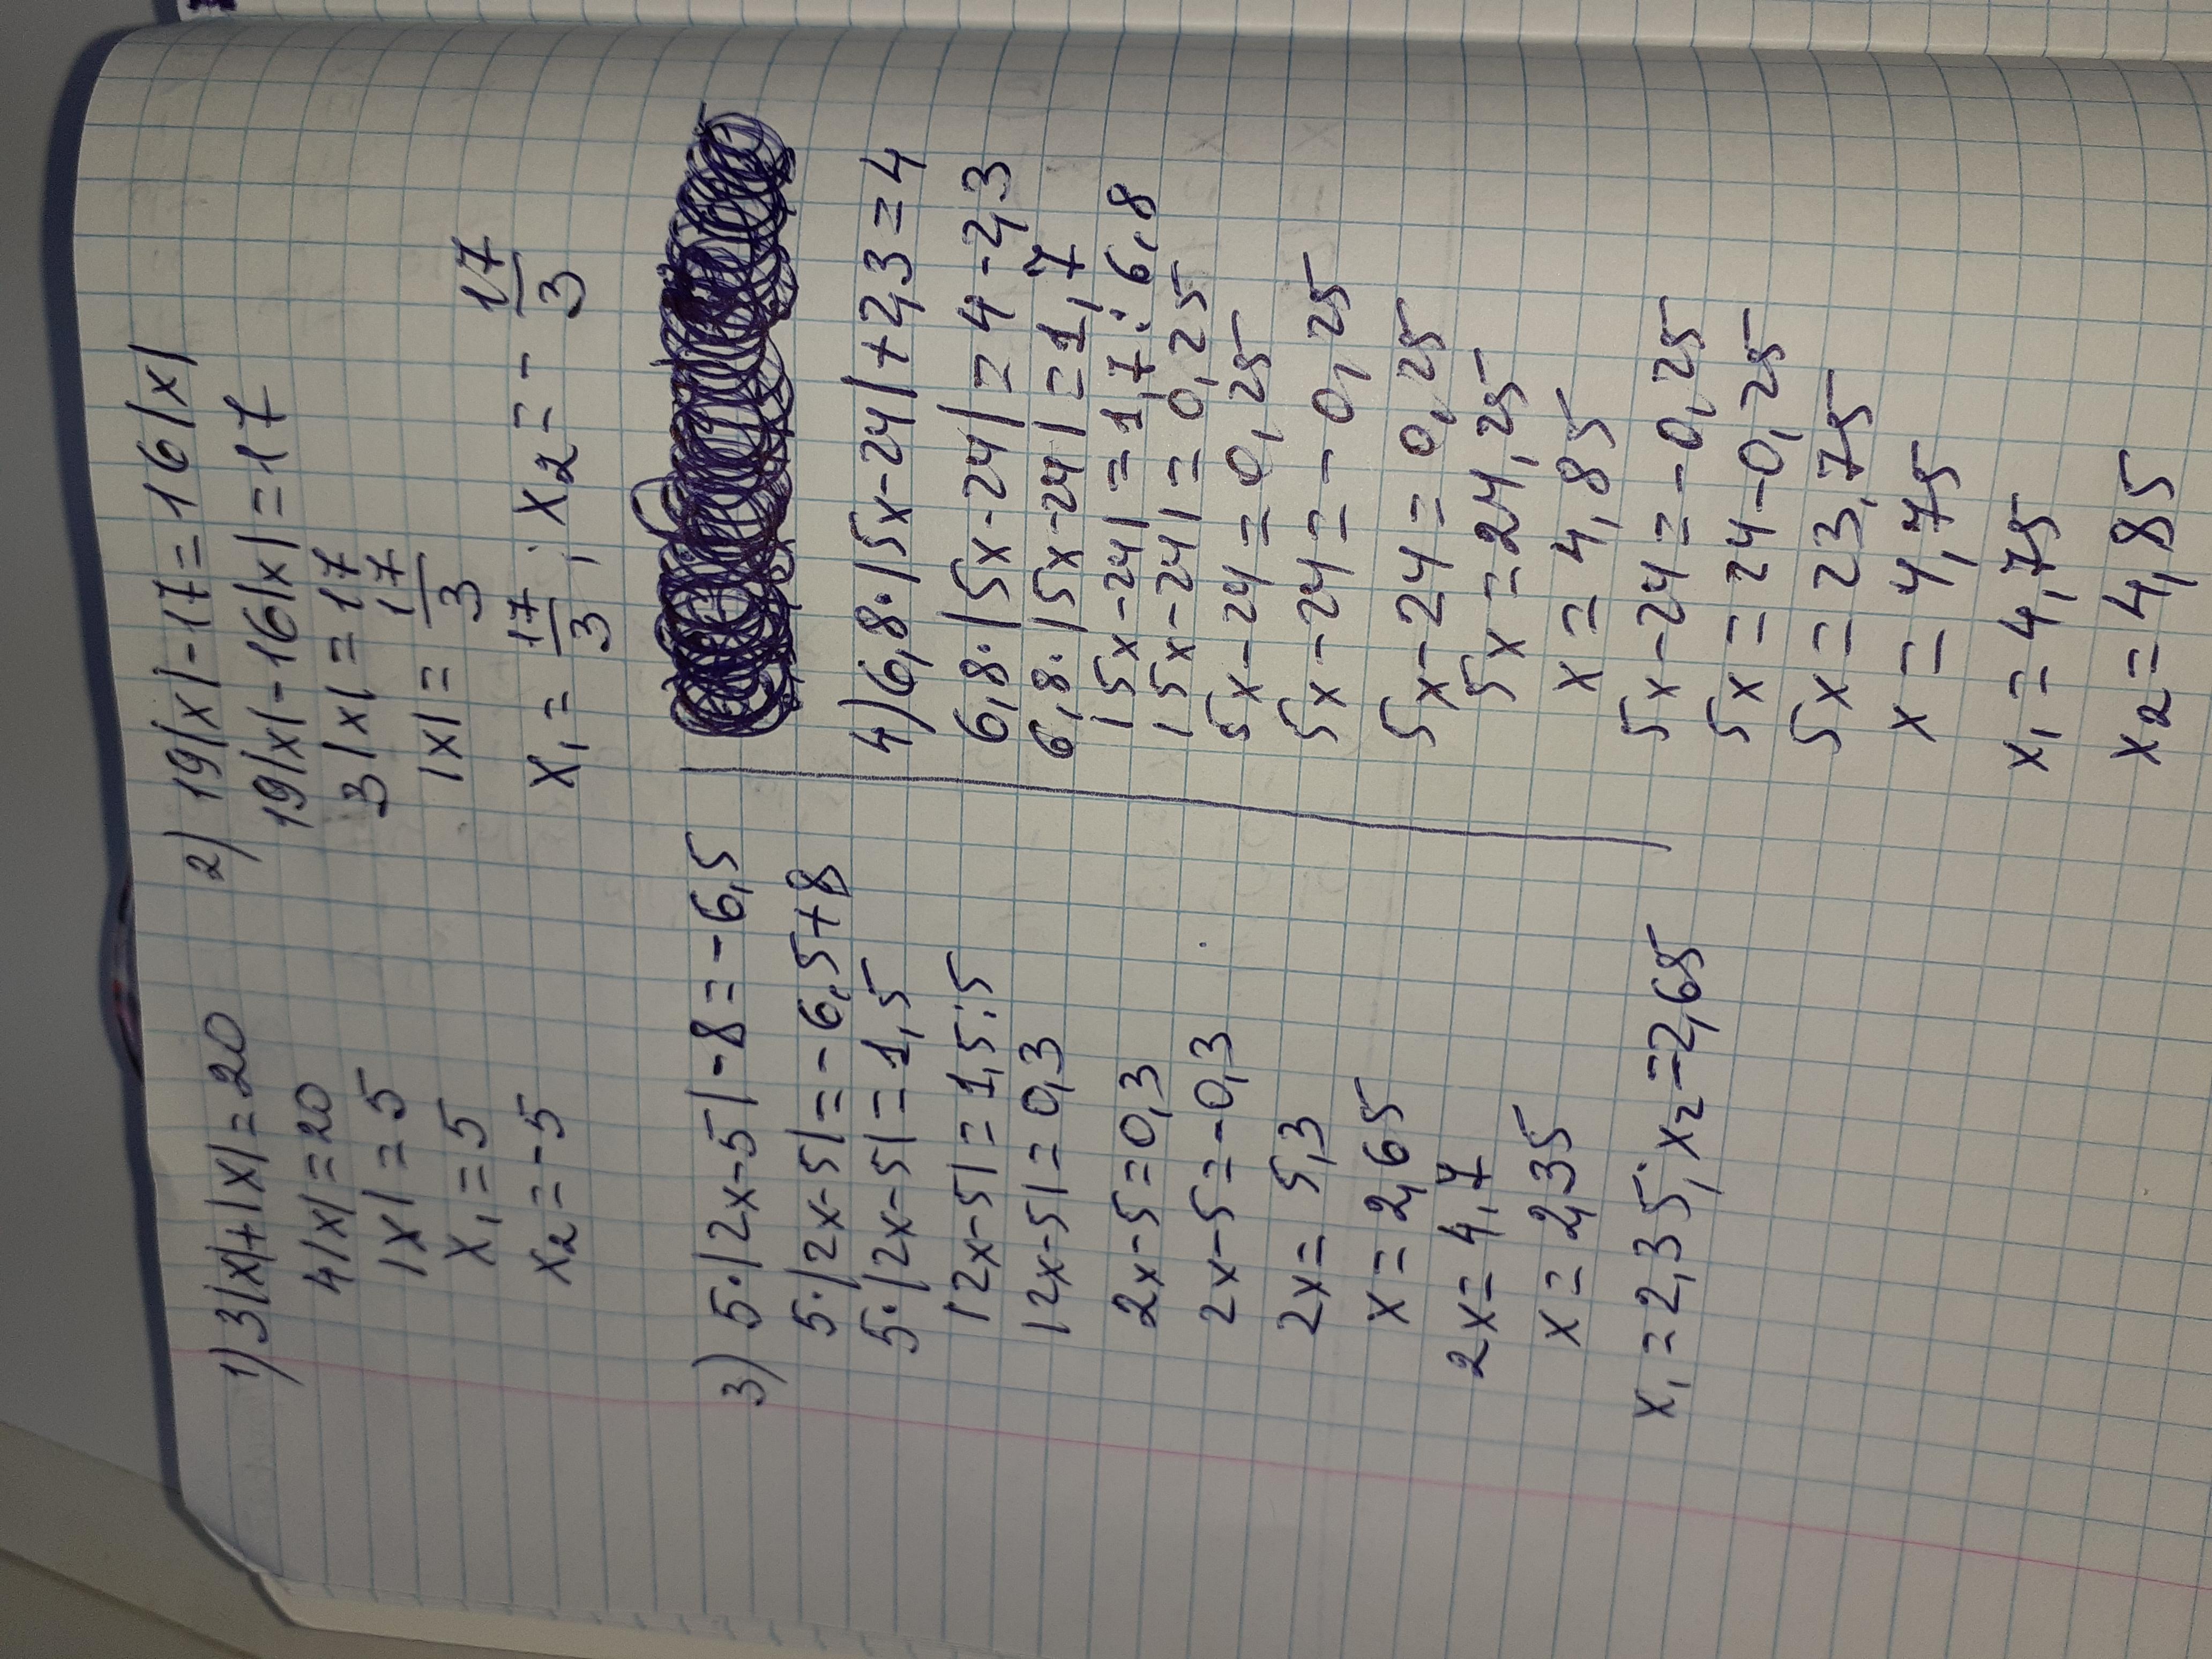 1) 3|x|+|x|=20
4|x|=20
|x|=5
x₁=5
x₂=-5
2) 19|x|-17=16|x|
19|x|-16|x|=17
3|x|=17
|x|=17/3
x₁=17/3; x₂=-17/3
3) 5·|2x-5|-8=-6,5
5·|2x-5|=-6,5+8
5·|2x-5|=1,5
|2x-5|=1,5:5
|2x-5|=0,3
2x-5=0,3
2x-5=-0,3
2x=5,3
x=2,65
2x=4,7
x=2,35
x₁=2,35; x₂=2,65
4) 6,8·|5x-24|+2,3=4
6,8·|5x-24|=4-2,3
6,8·|5x-24|=1,7
|5x-24|=1,7:6,8
|5x-24|=0,25
5x-24=0,25
5x-24=-0,25
5x-24=0,25
5x=24,25
x=4,85
5x-24=-0,25
5x=24-0,25
5x=23,75
x=4,75
x₁=4,75
x₂=4,85